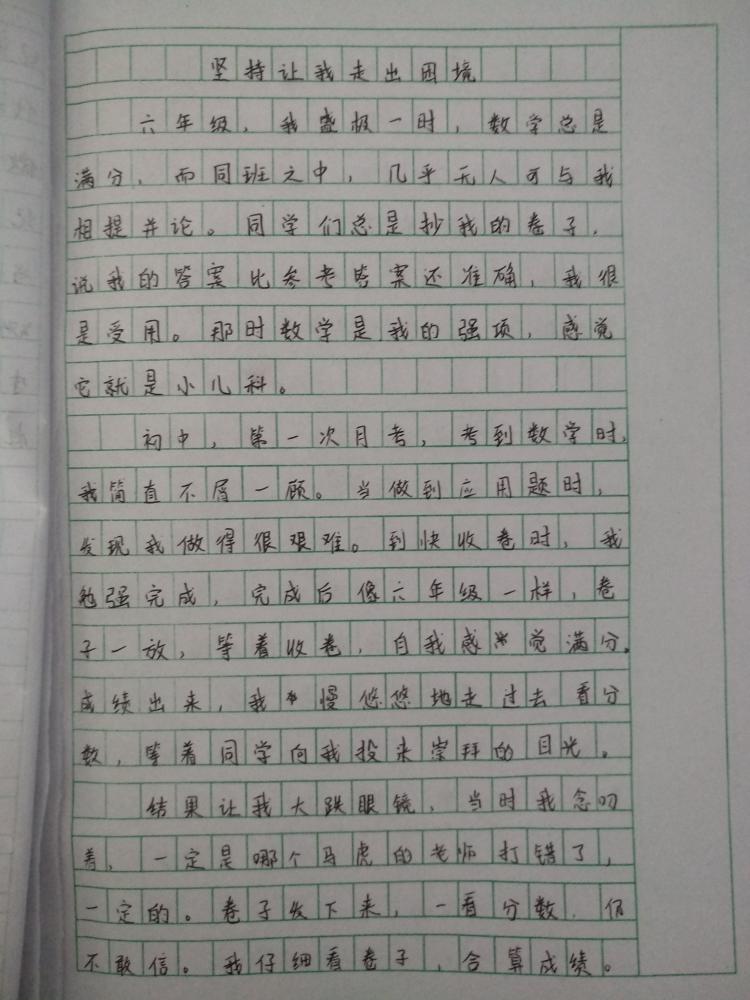 坚持让我走出困境
六年级，我盛极一时，数学总是
满分，而同班之中，几乎无人可与我
相提并论。同学们总是抄我的卷子，
说我的答案比参考答案还准确，我很
是受用。那时数学是我的强项，感觉
它就是小儿科。
初中，第一次月考，考到数学时，
我简直不屑一顾。当做到应用题时，
发现我做得很艰难。到快收卷时，我
勉强完成，完成后像六年级一样，卷
子一放，等着收卷，自我感觉满分。
成绩出来，我慢悠悠地走过去看分
数，等着同学向我投来崇拜的目光。
结果让我大跌眼镜，当时我念叨
着，一定是哪个马虎的老师打错了，
一定的。卷子发下来，一看分数，仍
不敢信。我仔细看卷子，合算成绩。